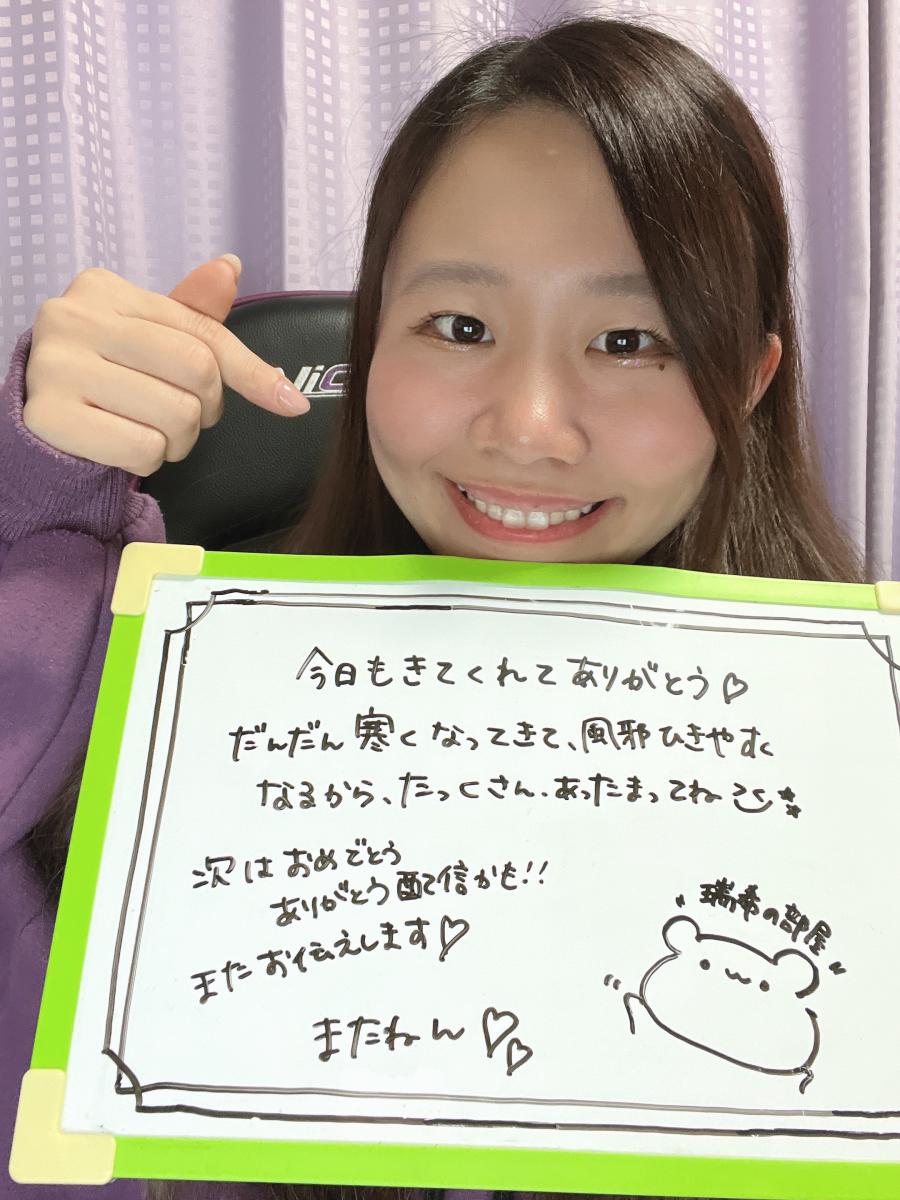 今日もきてくれてありがとう♡
だんだん寒くなってきて、風邪ひきやすく
なるから、たっくさん、あったまってね
次はおめでとう
ありがとう配信かも!!
またお伝えします♡
またねん♡♡
"瑞希の部屋"